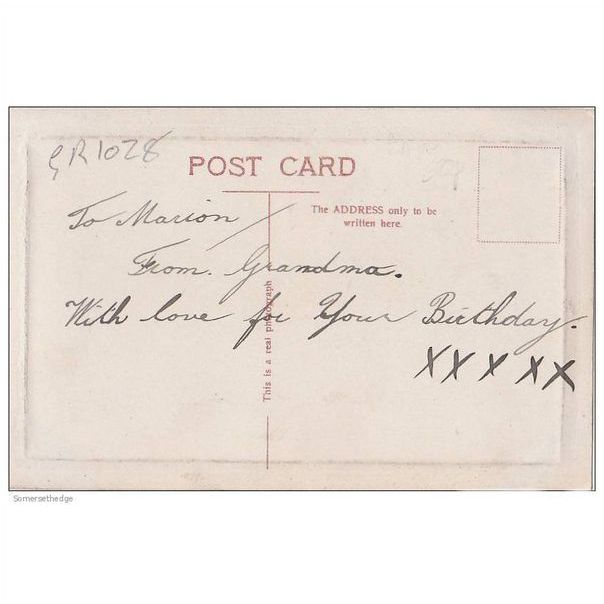 GR1028
POST CARD
To Marion
The ADDRESS only to be
written here.
From. Grandma.
With love for Your Birthday.
XXXXX
This is a real photograph
Somersethedge